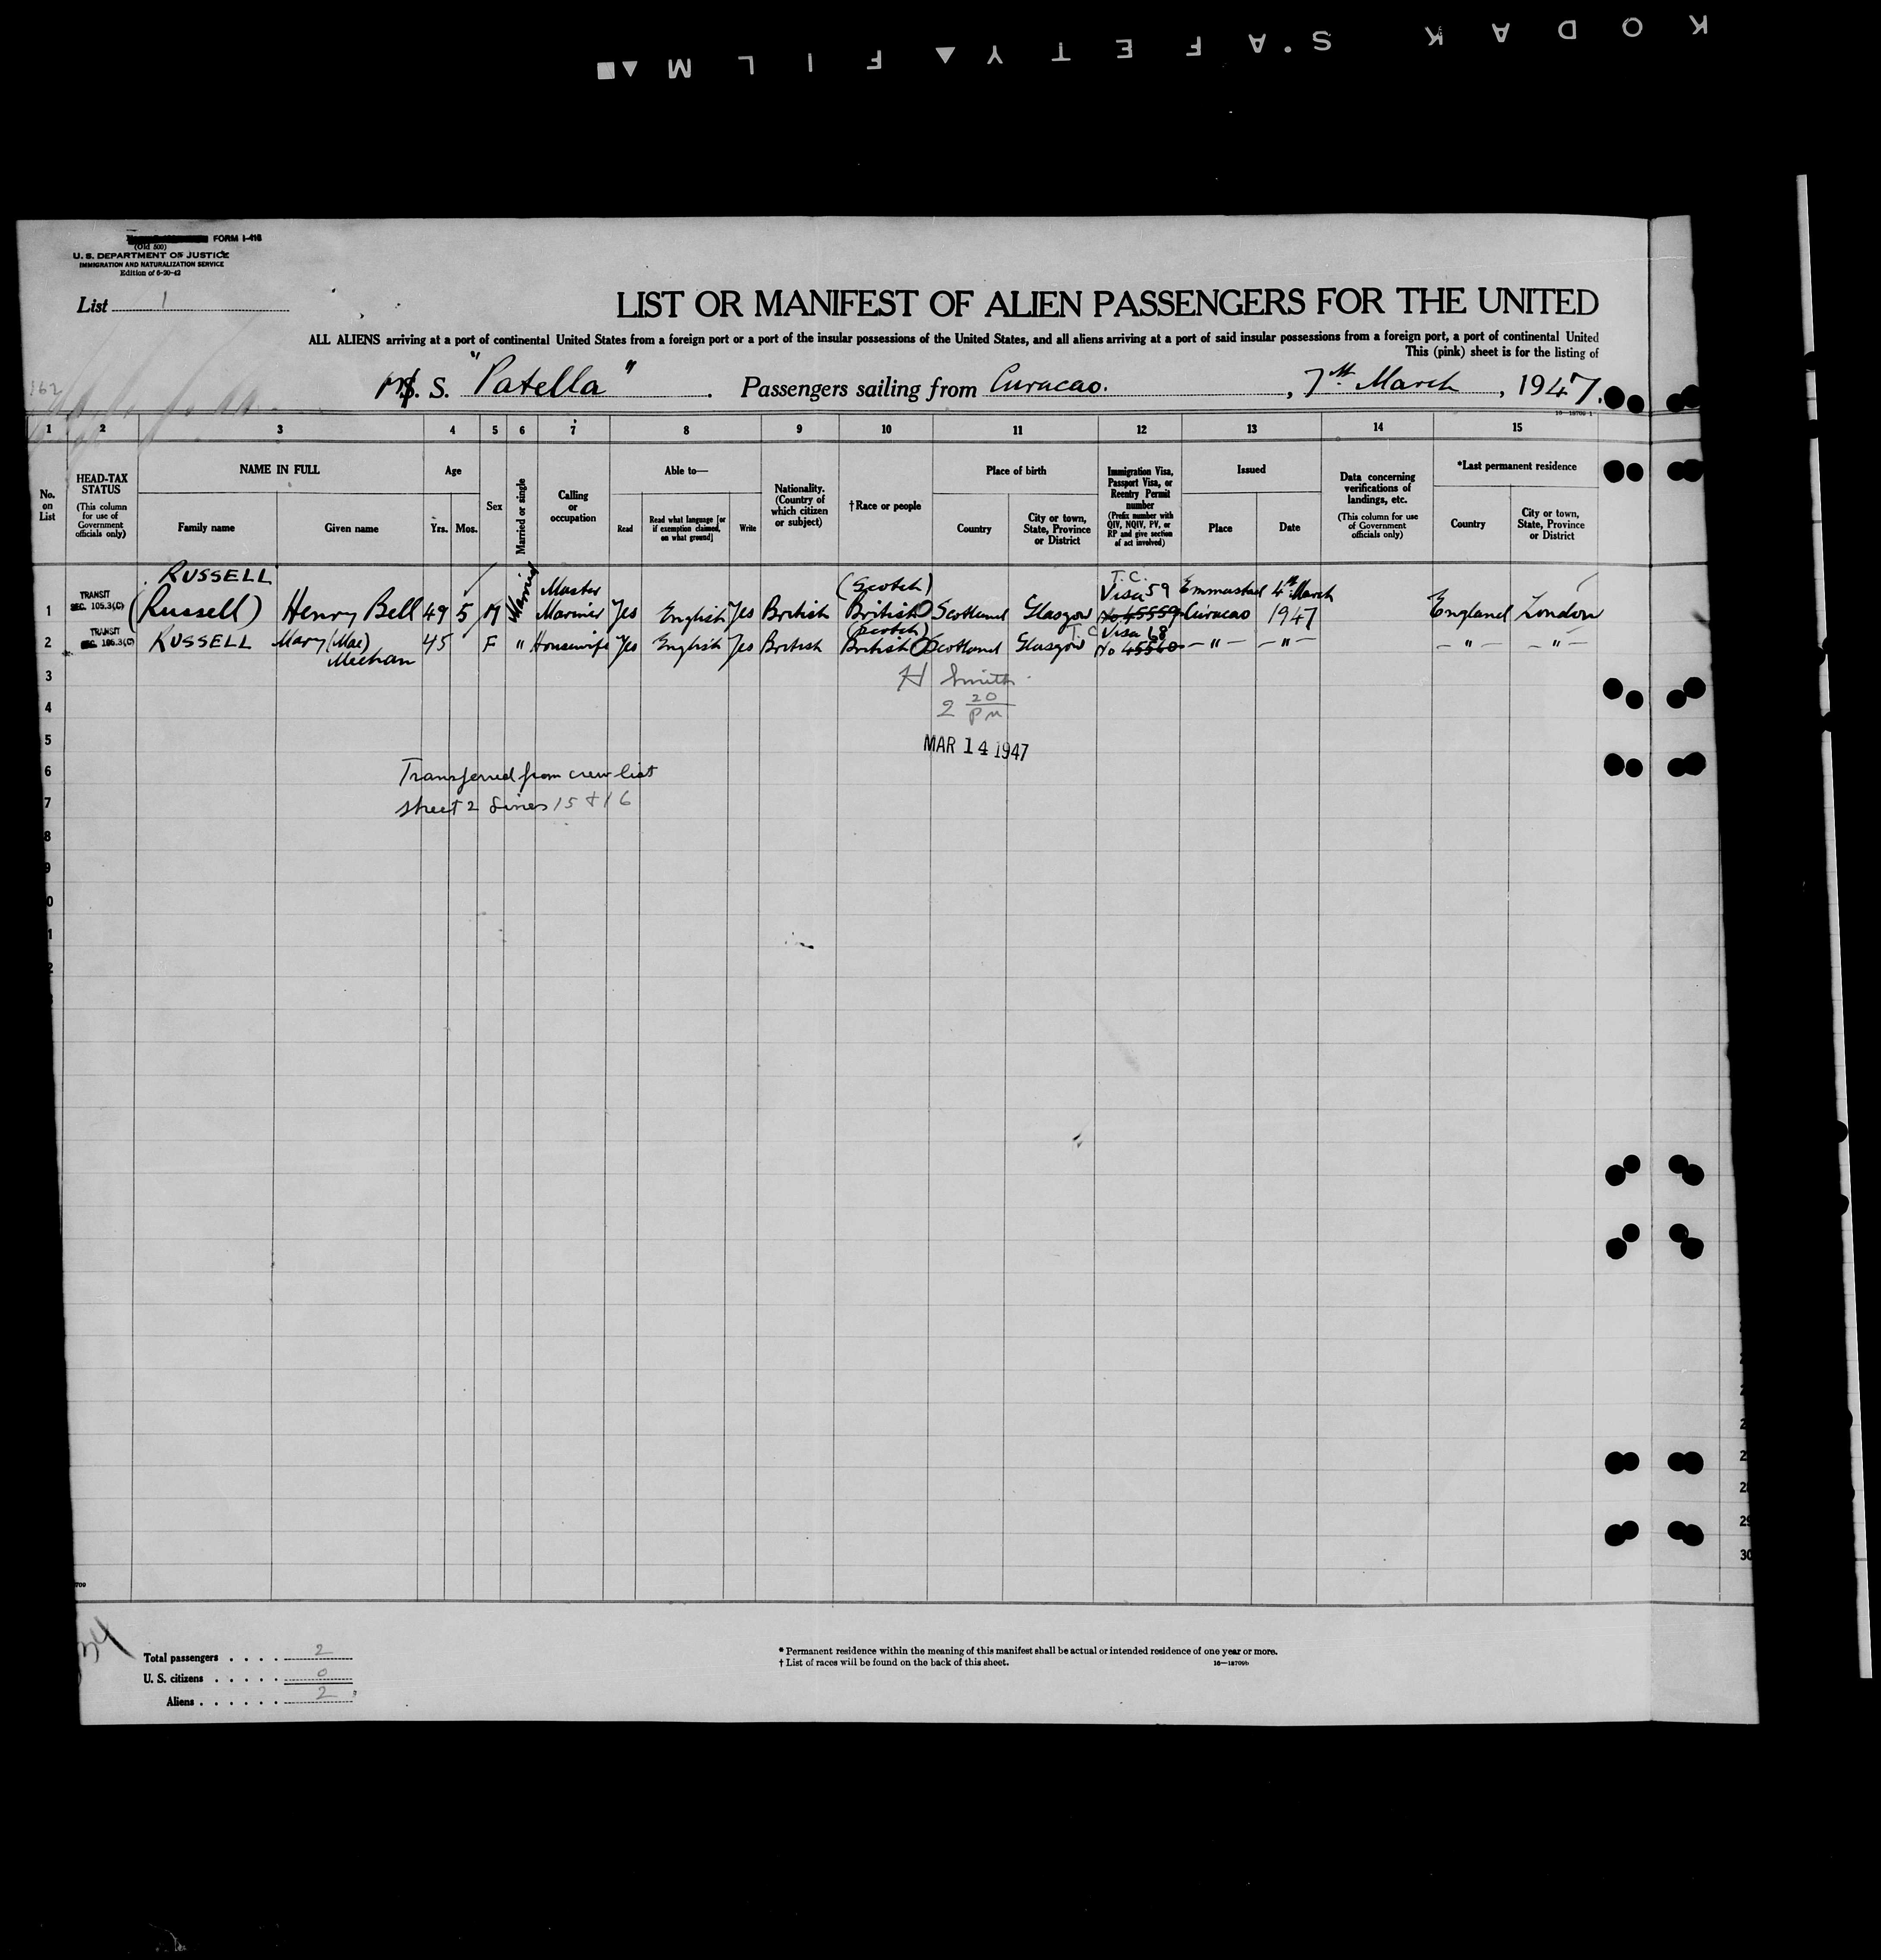 KODAK S.AFETY▲FILM▲■
FORM I-416
(Old 500)
U. S. DEPARTMENT OF JUSTICE
IMMIGRATION AND NATURALIZATION SERVICE
Edition of 6-20-42
List 1
LIST OR MANIFEST OF ALIEN PASSENGERS FOR THE UNITED
ALL ALIENS arriving at a port of continental United States from a foreign port or a port of the insular possessions of the United States, and all aliens arriving at a port of said insular possessions from a foreign port, a port of continental United
This (pink) sheet is for the listing of
162
M. S. "Patella". Passengers sailing from Curacao., 7th March, 1947.
1 2 3 4 5 6 7 8 9 10 11 12 13 14 15
No. on List
HEAD-TAX STATUS (This column for use of Government officials only)
NAME IN FULL
Family name Given name
Age
Yrs. Mos.
Sex
Married or single
Calling or occupation
Able to—
Read Read what language [or if exemption claimed, on what ground] Write
Nationality. (Country of which citizen or subject)
†Race or people
Place of birth
Country City or town, State, Province or District
Immigration Visa, Passport Visa, or Reentry Permit number (Prefix number with QIV, NQIV, PV, or RP and give section of act involved)
Issued
Place Date
Data concerning verifications of landings, etc. (This column for use of Government officials only)
*Last permanent residence
Country City or town, State, Province or District
RUSSELL Master (Scotch) T.C. Visa 59 Emmastad 4th March
1 TRANSIT SEC. 105.3(C) (Russell) Henry Bell 49 5 M Married Mariner Yes English Yes British British Scotland Glasgow No 45559 Curacao 1947 England London
(Scotch) T.C. Visa 68
2 TRANSIT SEC. 105.3(C) RUSSELL Mary (Mae) Meehan 45 F " Housewife Yes English Yes British British Scotland Glasgow No 45560 — " — — " — — " — — " —
3 H Smith
4 2 20 PM
5 MAR 14 1947
6 Transferred from crew list
7 sheet 2 lines 15 + 16
8
9
0
1
2
29
30
34
Total passengers . . . . . 2
U. S. citizens . . . . . 0
Aliens . . . . . . 2
* Permanent residence within the meaning of this manifest shall be actual or intended residence of one year or more.
† List of races will be found on the back of this sheet.
16—18709b